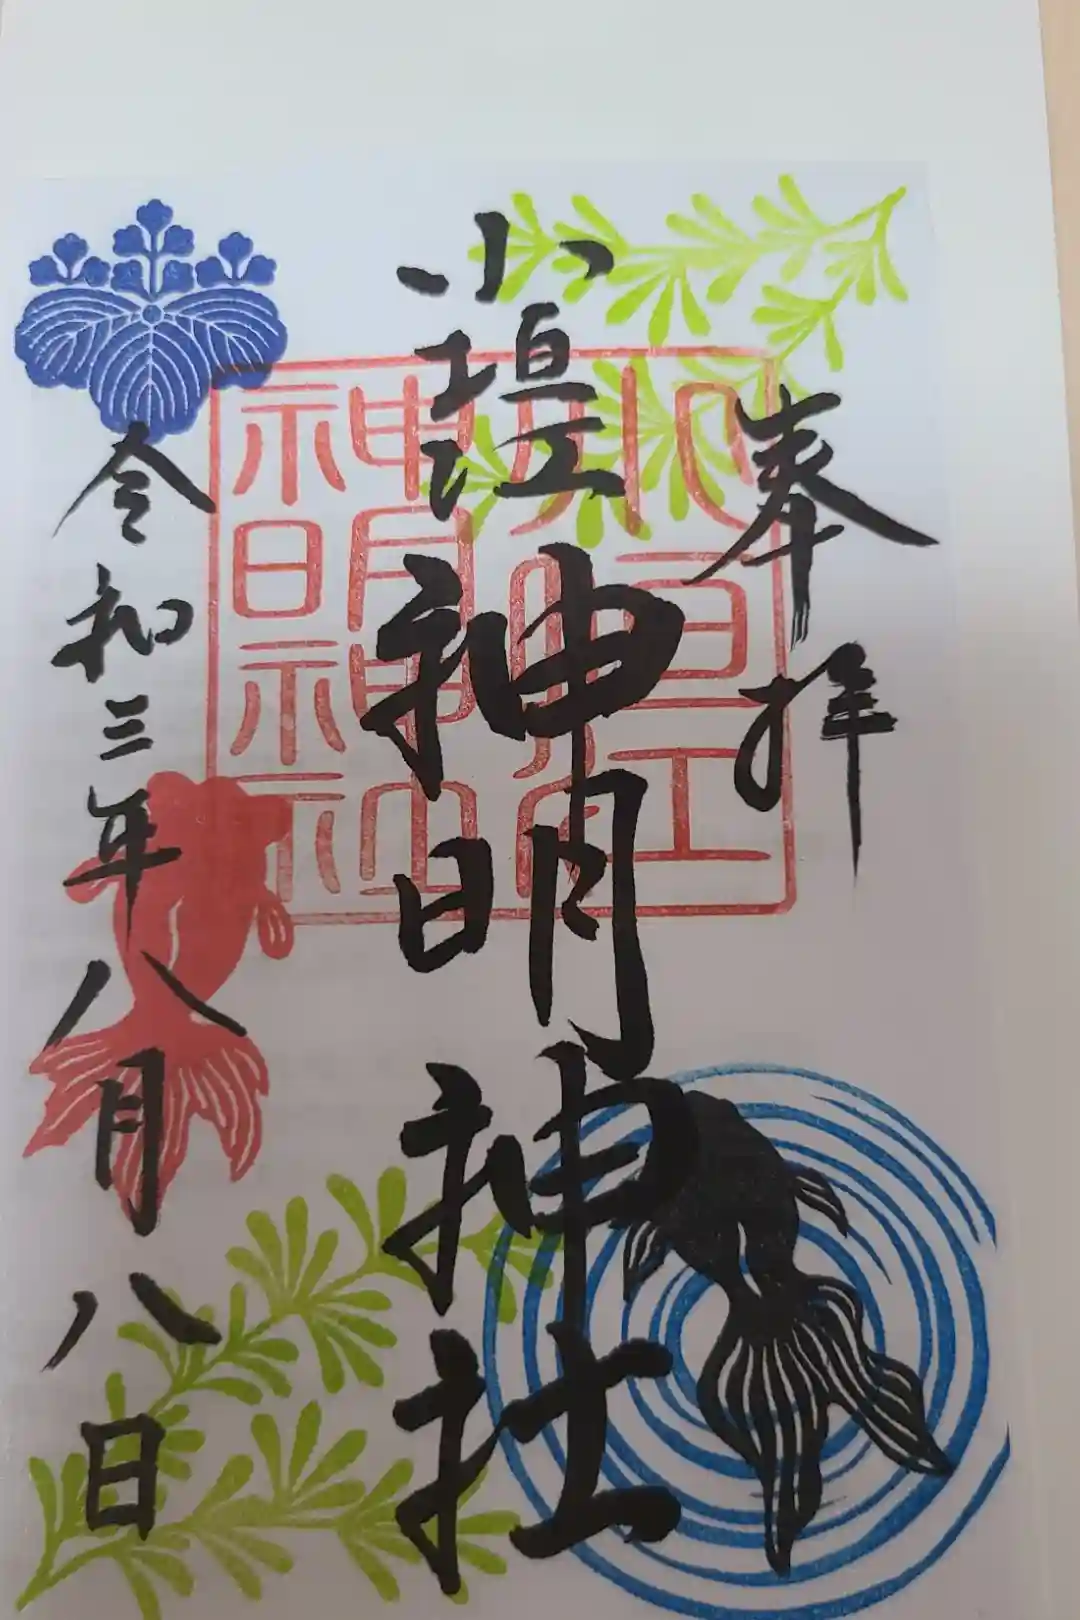 奉拝
小垣江
神明神社
小垣江神明神社
令和三年八月八日